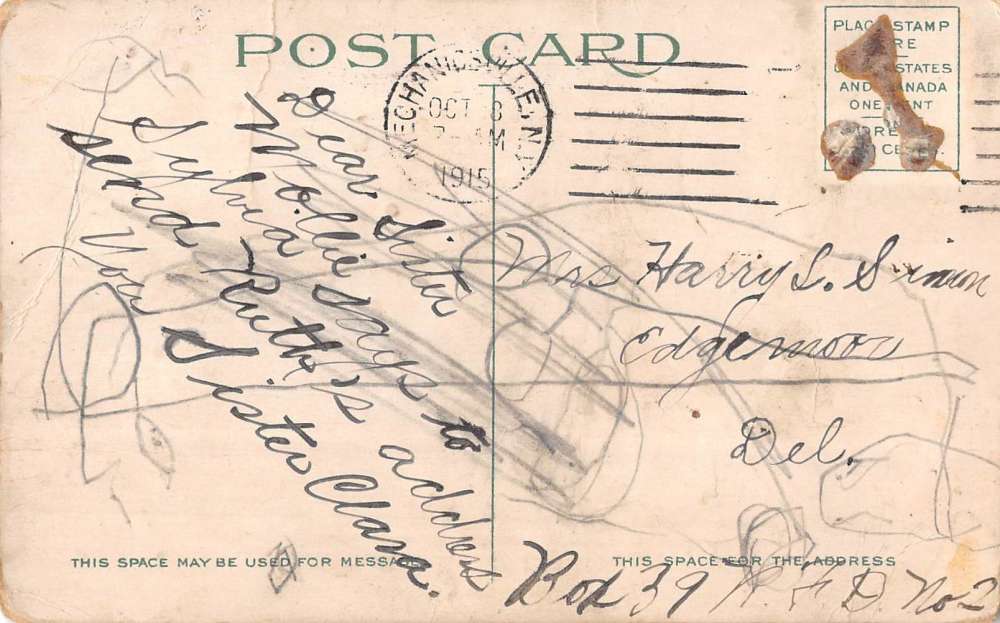 POST CARD
MECHANICSVILLE, N.Y.
OCT 8
7- AM
1915
PLACE STAMP
HERE
UNITED STATES
AND CANADA
ONE CENT
Dear Sister
Mollie says to
send Ruth's address
Sylvia
Your Sister Clara.
Mrs Harry L. Simon
Edgemoor
Del.
THIS SPACE MAY BE USED FOR MESSAGE
THIS SPACE FOR THE ADDRESS
Box 39 R. F. D. No 2